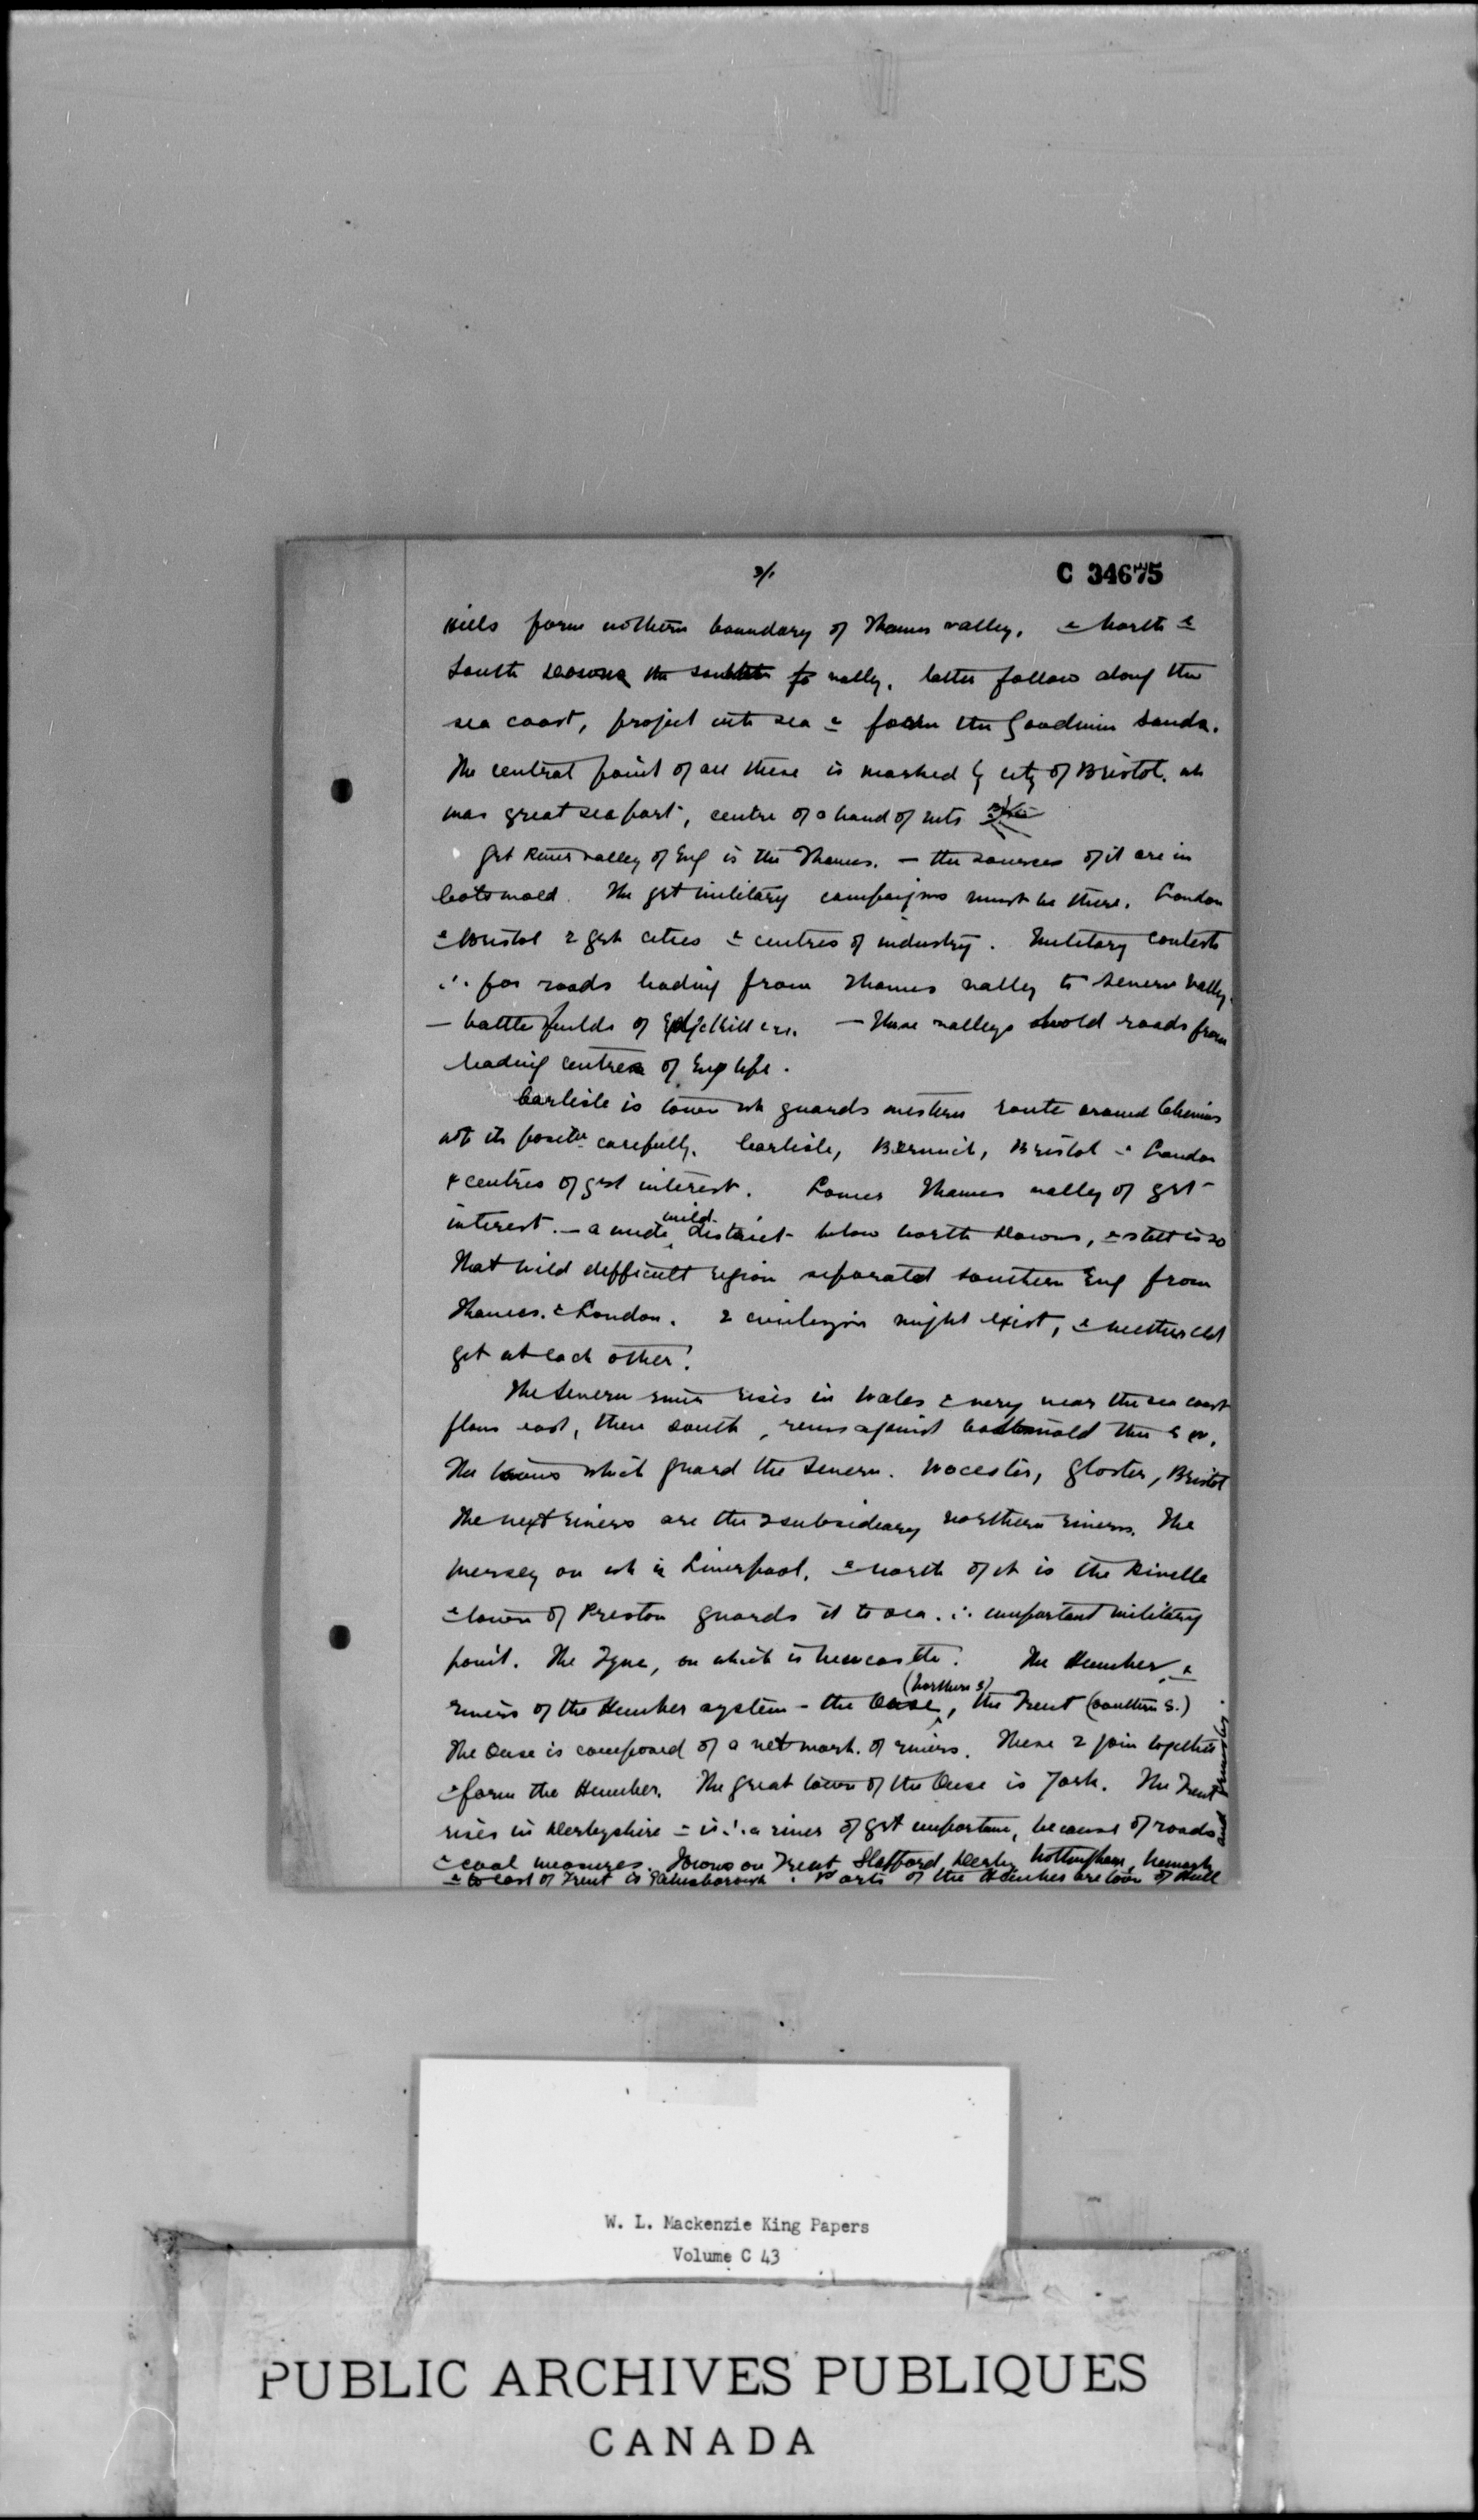 3/.
C 34675
Hills form nothern boundary of Thames valley. & North &
South Downs the southern valley. latter follow along the
sea coast, project into sea & form the Goodwin Sands.
The central point of all these is marked by city of Bristol. wh
was great seaport, centre of a band of mts
Grt River valley of Eng is the Thames. — the sources of it are in
Cotswold. The grt military campaigns must be there. London
& Bristol 2 grt cities & centres of industry. Military contests
∴ for roads leading from Thames valley to Severn valley.
— battle fields of Edgehill &c. — These valleys hold roads from
leading centres of Eng life.
Carlisle is town wh guards western route around Cheviots
note its positn carefully. Carlisle, Berwick, Bristol & London
4 centres of grt interest. Lower Thames valley of grt
interest. — a wide wild district below North Downs, & still is so
That wild difficult region separated southern Eng from
Thames. & London. 2 might exist, & neither cld
get at each other!
The Severn river rises in Wales & very near the sea coast
flows east, then south, runs against Cotswold then S W.
The towns which guard the Severn. Wocester, Gloster, Bristol
The next rivers are the 2 subsidiary northern rivers. The
Mersey on wh is Liverpool. & north of it is the Rivelle
& town of Preston guards it to sea. ∴ important military
point. The Tyne, on which is Newcastle. The Humber, &
rivers of the Humber system - the Ouse (northern s), the Trent (southern s.)
The Ouse is composed of a network of rivers. These 2 join together
& form the Humber. The great town of the Ouse is York. The Trent
rises in Derbyshire & is ∴ a river of grt importance, because of roads
& coal measures. Towns on Trent Stafford, Derby, Nottingham, Newark
& to east of Trent is Gainsborough. Ports of the Humber are town of Hull
W. L. Mackenzie King Papers
Volume C 43
PUBLIC ARCHIVES PUBLIQUES
CANADA